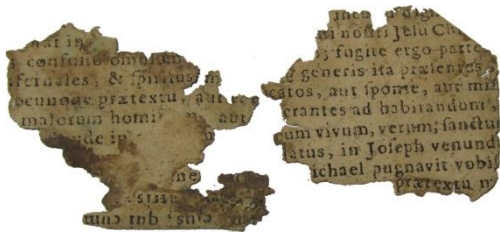 nat in
confinio omnium
fernales, & spiritus in
ocunque prætextu, aut
malorum homi aut
ide in
ne
qui cum
Digi
ni nostri Jesu Chri
; fugite ergo parte
e generis ita præientes,
catos, aut sponte, aut mis
erantes ad habitandum
cum vivum, verum; sanctu
latus, in Joseph venund
ichael pugnavit vobis
prætextu n